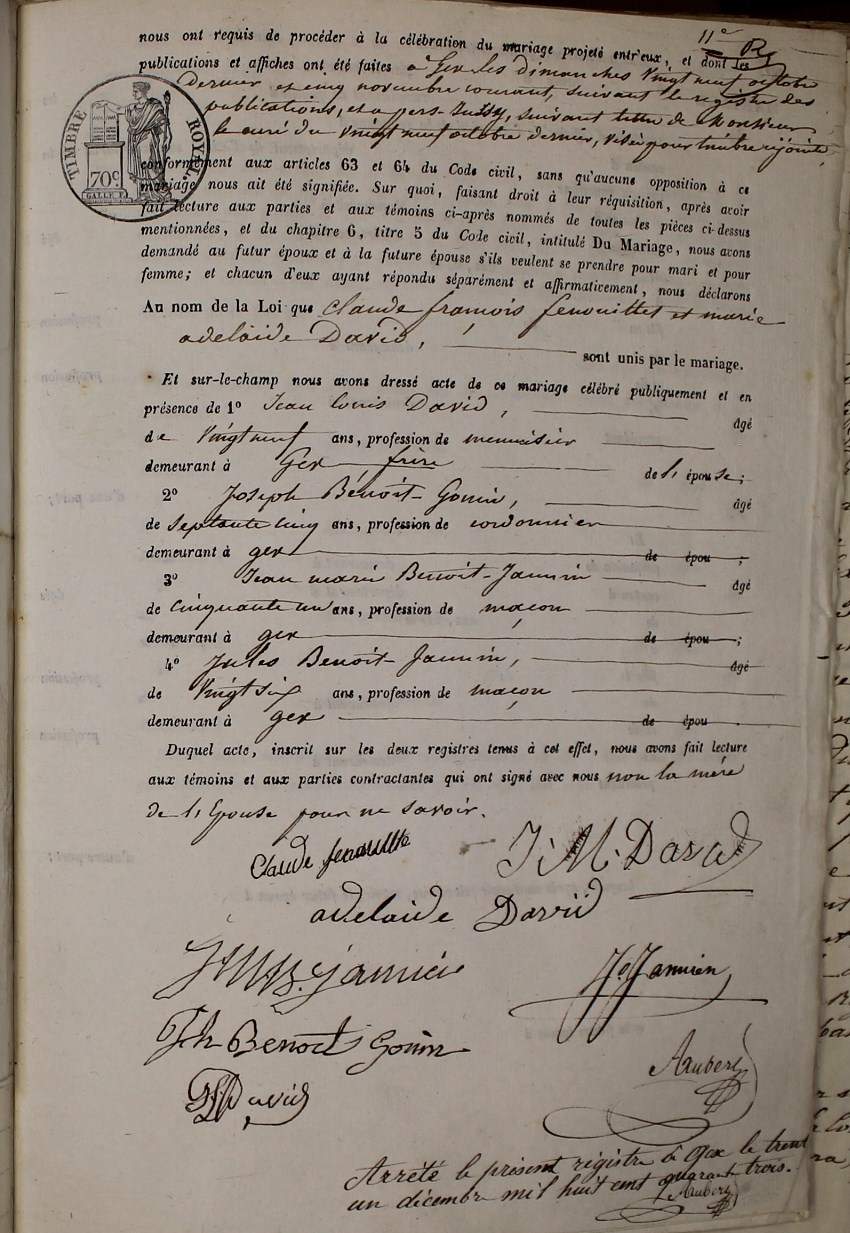 11e R
nous ont requis de procéder à la célébration du mariage projeté entr'eux, et dont les
publications et affiches ont été faites à Gex les dimanches vingt neuf octobre
dernier et cinq novembre courant, suivant le registre des
publications, et à pers-Jussy, suivant lettre de Monsieur
le curé du vingt neuf octobre dernier, visée pour timbre
conformément aux articles 63 et 64 du Code civil, sans qu'aucune opposition à ce
mariage nous ait été signifiée. Sur quoi, faisant droit à leur réquisition, après avoir
fait lecture aux parties et aux témoins ci-après nommés de toutes les pièces ci-dessus
mentionnées, et du chapitre 6, titre 5 du Code civil, intitulé Du Mariage, nous avons
demandé au futur époux et à la future épouse s'ils veulent se prendre pour mari et pour
femme; et chacun d'eux ayant répondu séparément et affirmativement, nous déclarons
Au nom de la Loi que Claude françois fenouillet et marie
adelaide David, sont unis par le mariage.
Et sur-le-champ nous avons dressé acte de ce mariage célébré publiquement et en
présence de 1o Jean Louis David, âgé
de vingt neuf ans, profession de menuisier
demeurant à Gex, frère de l'épouse;
2o Joseph Benoit-Gonin, âgé
de septante cinq ans, profession de cordonnier
demeurant à gex de épou ;
3o Jean marie Benoit-Jannin âgé
de Cinquante un ans, profession de maçon
demeurant à gex de épou ;
4o Jules Benoit-Jannin, âgé
de vingt six ans, profession de maçon
demeurant à gex de épou .
Duquel acte, inscrit sur les deux registres tenus à cet effet, nous avons fait lecture
aux témoins et aux parties contractantes qui ont signé avec nous non la mère
de l'Epouse pour ne savoir.
Claude fenouillet
J. M. David
adelaide David
B. Jannin
Js Jannien
Jh Benoit Gonin
JL David
Aubert
Arrêté le présent registre à Gex le trent
un décembre mil huit cent quarante trois.
Aubert
TIMBRE ROYAL
70c